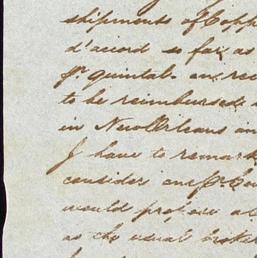 shipments of Copp
d'accord so far as
pr quintal- on rec
to be reimbursed
in New Orleans on
I have to remark
consider
would propose a
as the usual broker